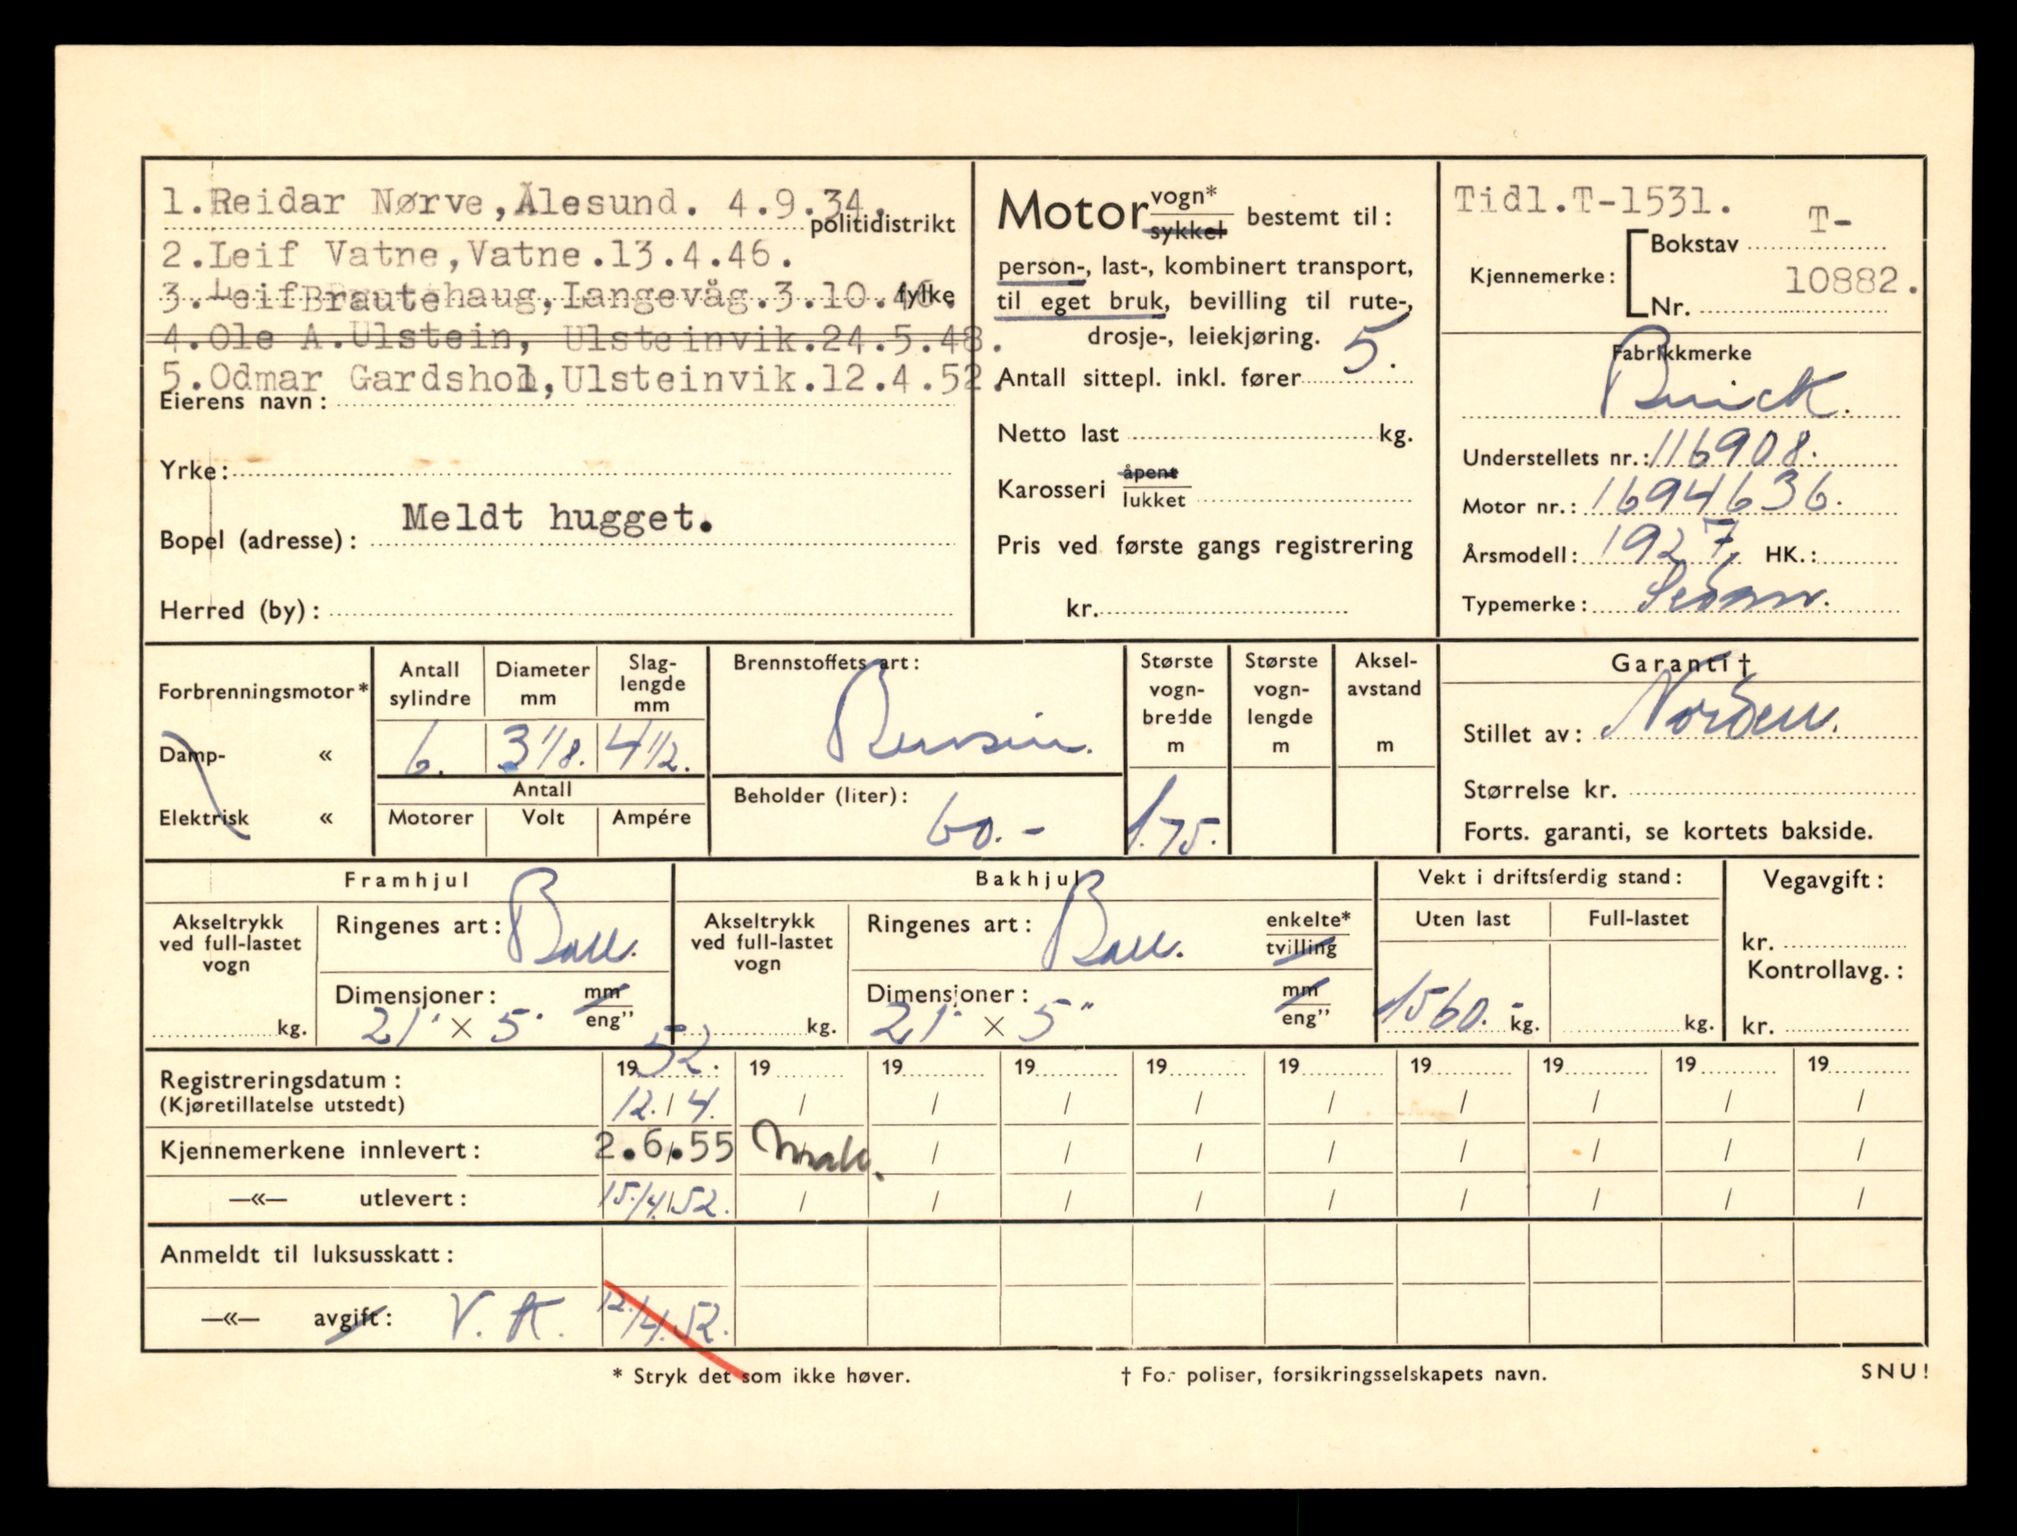 1.Reidar Nørve,Ålesund. 4.9.34.
politidistrikt
2.Leif Vatne,Vatne.13.4.46.
3.Leif Brautehaug,Langevåg.3.10.46.
fylke
4.Ole A.Ulstein, Ulsteinvik.24.5.48.
5.Odmar Gardshol,Ulsteinvik.12.4.52.
Eierens navn:
Yrke:
Meldt hugget.
Bopel (adresse):
Herred (by):
Motor vogn*
sykkel bestemt til:
person-, last-, kombinert transport,
til eget bruk, bevilling til rute-,
drosje-, leiekjøring.
Antall sittepl. inkl. fører 5.
Netto last kg.
Karosseri åpent
lukket
Pris ved første gangs registrering
kr.
Tidl.T-1531.
Kjennemerke: Bokstav T-
Nr. 10882.
Fabrikkmerke
Buick.
Understellets nr.: 116908.
Motor nr.: 1694636.
Årsmodell: 1927, HK.:
Typemerke: Sedan.
Forbrenningsmotor*
Damp- «
Elektrisk «
Antall sylindre
6.
Diameter mm
3 1/8.
Slag-
lengde
mm
4 1/2.
Antall
Motorer Volt Ampére
Brennstoffets art:
Bensin.
Beholder (liter):
60.-
Største
vogn-
bredde
m
1.75.
Største
vogn-
lengde
m
Aksel-
avstand
m
Garanti †
Stillet av: Norden.
Størrelse kr.
Forts. garanti, se kortets bakside.
Framhjul
Akseltrykk
ved full-lastet
vogn
kg.
Ringenes art: Ball.
Dimensjoner: mm
eng"
21" × 5"
Bakhjul
Akseltrykk
ved full-lastet
vogn
kg.
Ringenes art: Ball. enkelte*
tvilling
Dimensjoner: mm
eng"
21" × 5"
Vekt i driftsferdig stand:
Uten last Full-lastet
1560.- kg. kg.
Vegavgift:
kr.
Kontrollavg.:
kr.
Registreringsdatum: 1952. 19 19 19 19 19 19 19 19 19
(Kjøretillatelse utstedt) 12./4. / / / / / / / / /
Kjennemerkene innlevert: 2.6.55 / / / / / / / / /
—«— utlevert: 15/4.52. / / / / / / / / /
Anmeldt til luksusskatt:
—«— avgift: V. K. 12./4.52.
* Stryk det som ikke høver. † For poliser, forsikringsselskapets navn. SNU!